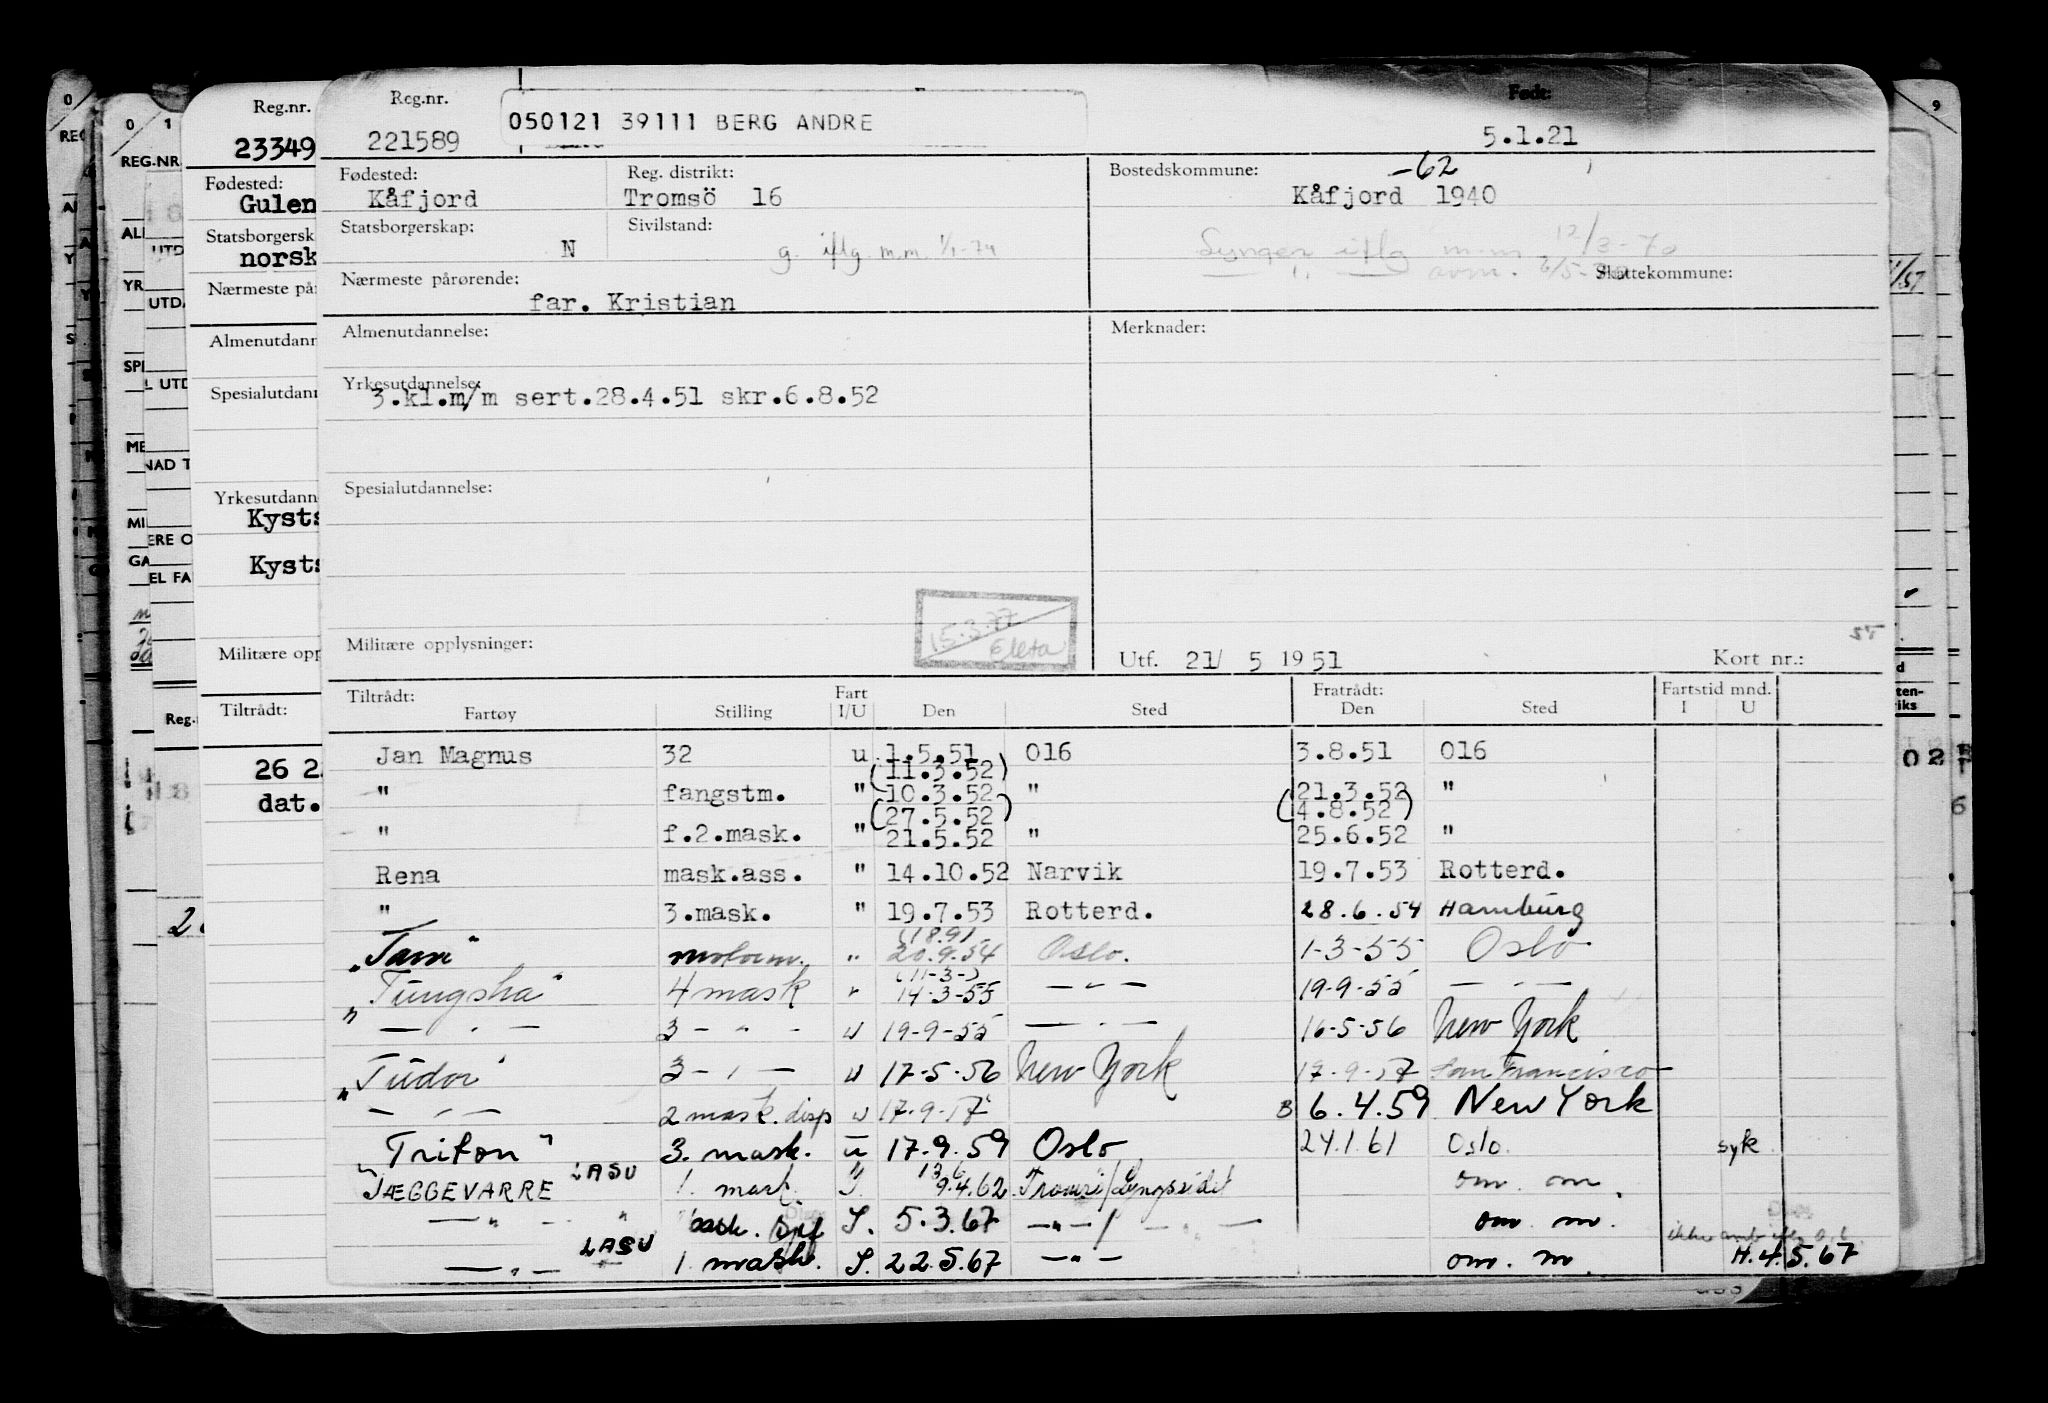 Reg.nr. 221589 050121 39111 BERG ANDRE Født: 5.1.21
Fødested: Kåfjord Reg. distrikt: Tromsö 16 Bostedskommune: Kåfjord 1940 -62
Statsborgerskap: N Sivilstand: g. iflg m.m. 1/1-74
Lyngen iflg m.m 12/3-70
Skattekommune:
Nærmeste pårørende: far. Kristian
Almenutdannelse: Merknader:
Yrkesutdannelse: 3.kl.m/m sert.28.4.51 skr.6.8.52
Spesialutdannelse:
15.3.77
Militære opplysninger: Utf. 21/ 5 1951 Kort nr.:
Tiltrådt: Fart Fratrådt: Fartstid mnd.
Fartøy Stilling I/U Den Sted Den Sted I U
Jan Magnus 32 u 1.5.51 O16 3.8.51 O16
(11.3.52)
" fangstm. " 10.3.52 " 21.3.52 "
(27.5.52) (4.8.52)
" f.2.mask. " 21.5.52 " 25.6.52 "
Rena mask.ass. " 14.10.52 Narvik 19.7.53 Rotterd.
" 3.mask. " 19.7.53 Rotterd. 28.6.54 Hamburg
(18.9)
motorm. " 20.9.54 Oslo. 1-3-55 Oslo
(11-3-)
"Tungsha" 4 mask " 14-3-55 — " — 19-9-55 — " —
" — " — 3 - " - u 19-9-55 — " — 16-5-56 New York
"Tudor" 3 — " — u 17-5-56 New York 17-9-57 San Francisco
— " — 2 mask. disp u 17-9-57 B 6.4.59 New York
"Triton" 3. mask. u 17.9.59 Oslo 24.1.61 Oslo. syk
13 6
JÆGGEVARRE LASU 1. mask. 9.4.62 Tromsø/Lyngseidet om. om.
— " — " mask. 5.3.67 — " — / — " — om. m.
— " — LASU 1. mask. 22.5.67 — " — om. m. H.4.5.67
Reg.nr.
23349
Fødested:
Gulen
Statsborgersk
norsk
Nærmeste på
Almenutdann
Spesialutdann
Yrkesutdann
Kysts
Kysts
Militære opp
Tiltrådt:
26 2
dat.
REG.NR.
UTD